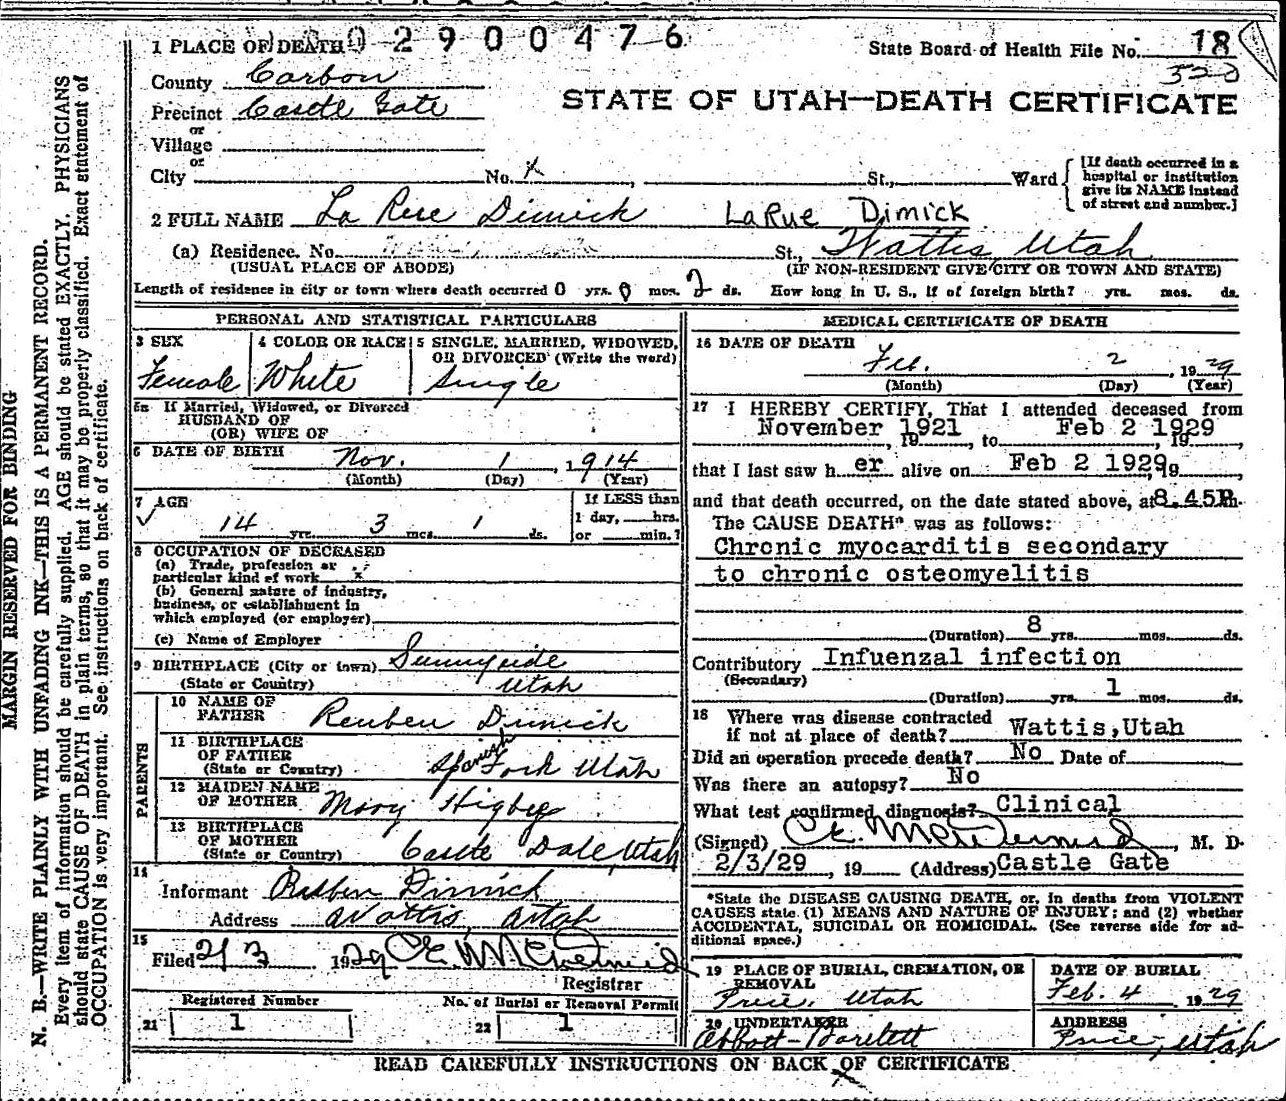 2900476
1 PLACE OF DEATH
State Board of Health File No. 18
County Carbon
Precinct Castle Gate
STATE OF UTAH—DEATH CERTIFICATE
or
Village
or
City No. x St., Ward
[If death occurred in a
hospital or institution
give its NAME instead
of street and number.]
2 FULL NAME La Rue Dimick LaRue Dimick
(a) Residence. No. St., Wattis, Utah
(USUAL PLACE OF ABODE) (IF NON-RESIDENT GIVE CITY OR TOWN AND STATE)
Length of residence in city or town where death occurred 0 yrs. 0 mos. 2 ds. How long in U. S., if of foreign birth? yrs. mos. ds.
PERSONAL AND STATISTICAL PARTICULARS
3 SEX 4 COLOR OR RACE 5 SINGLE, MARRIED, WIDOWED,
OR DIVORCED (Write the word)
Female White Single
5a If Married, Widowed, or Divorced
HUSBAND OF
(OR) WIFE OF
6 DATE OF BIRTH Nov. 1, 1914
(Month) (Day) (Year)
7 AGE If LESS than
1 day, hrs.
14 yrs. 3 mos. 1 ds. or min.?
8 OCCUPATION OF DECEASED
(a) Trade, profession or
particular kind of work x
(b) General nature of industry,
business, or establishment in
which employed (or employer)
(c) Name of Employer
9 BIRTHPLACE (City or town) Sunnyside
(State or Country) Utah
PARENTS
10 NAME OF
FATHER Reuben Dimick
11 BIRTHPLACE
OF FATHER
(State or Country) Spanish Fork Utah
12 MAIDEN NAME
OF MOTHER Mary Higby
13 BIRTHPLACE
OF MOTHER
(State or Country) Castle Dale, Utah
14
Informant Reuben Dimick
Address Wattis, Utah
15
Filed 2/3 1929 C.E. McDermid
Registrar
Registered Number No. of Burial or Removal Permit
21 1 22 1
MEDICAL CERTIFICATE OF DEATH
16 DATE OF DEATH
Feb. 2, 1929
(Month) (Day) (Year)
17 I HEREBY CERTIFY, That I attended deceased from
November 1921, 19 to Feb 2 1929, 19
that I last saw h er alive on Feb 2 1929, 19
and that death occurred, on the date stated above, at 8.45P m.
The CAUSE DEATH* was as follows:
Chronic myocarditis secondary
to chronic osteomyelitis
(Duration) 8 yrs. mos. ds.
Contributory Infuenzal infection
(Secondary)
(Duration) yrs. 1 mos. ds.
18 Where was disease contracted
if not at place of death? Wattis,Utah
Did an operation precede death? No Date of
Was there an autopsy? No
What test confirmed diagnosis? Clinical
(Signed) C.E. McDermid, M. D.
2/3/29, 19 (Address) Castle Gate
*State the DISEASE CAUSING DEATH, or, in deaths from VIOLENT
CAUSES state (1) MEANS AND NATURE OF INJURY; and (2) whether
ACCIDENTAL, SUICIDAL OR HOMICIDAL. (See reverse side for ad-
ditional space.)
19 PLACE OF BURIAL, CREMATION, OR
REMOVAL
Price, Utah
DATE OF BURIAL
Feb. 4, 1929
20 UNDERTAKER
ADDRESS
Price, Utah
READ CAREFULLY INSTRUCTIONS ON BACK OF CERTIFICATE
MARGIN RESERVED FOR BINDING
N. B.—WRITE PLAINLY WITH UNFADING INK—THIS IS A PERMANENT RECORD.
Every item of information should be carefully supplied. AGE should be stated EXACTLY. PHYSICIANS
should state CAUSE OF DEATH in plain terms, so that it may be properly classified. Exact statement of
OCCUPATION is very important. See instructions on back of certificate.